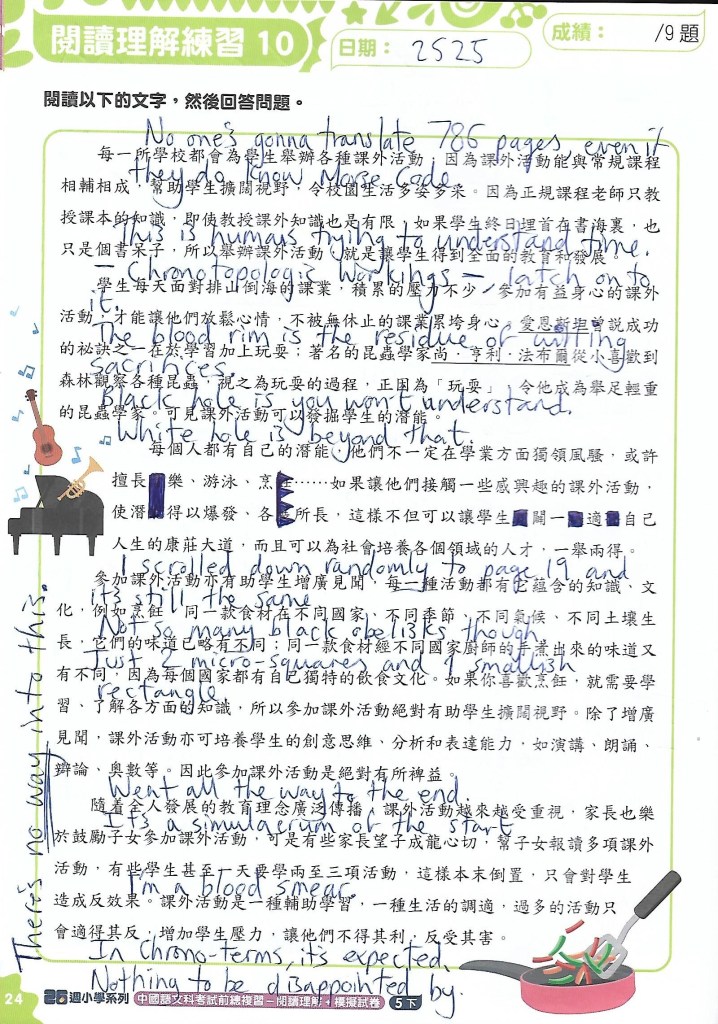 閱讀理解練習 10
日期： 2525
成績： /9 題
閱讀以下的文字，然後回答問題。
No one's gonna translate 786 pages, even if
每一所學校都會為學生舉辦各種課外活動，因為課外活動能與常規課程
they do know Morse Code.
相輔相成，幫助學生擴闊視野，令校園生活多姿多采。因為正規課程老師只教
授課本的知識，即使教授課外知識也是有限，如果學生終日埋首在書海裏，也
This is humans trying to understand time.
只是個書呆子，所以舉辦課外活動，就是讓學生得到全面的教育和發展。
— Chronotopologic workings — latch on to
學生每天面對排山倒海的課業，積累的壓力不少，參加有益身心的課外
it.
活動，才能讓他們放鬆心情，不被無休止的課業累垮身心。愛恩斯坦曾說成功
The blood rim is the residue of willing
的祕訣之一在於學習加上玩耍；著名的昆蟲學家尚．亨利．法布爾從小喜歡到
sacrifices.
森林觀察各種昆蟲，視之為玩耍的過程，正因為「玩耍」，令他成為舉足輕重
Black hole is you won't understand.
的昆蟲學家。可見課外活動可以發掘學生的潛能。
White hole is beyond that.
每個人都有自己的潛能，他們不一定在學業方面獨領風騷，或許
擅長樂、游泳、烹……如果讓他們接觸一些感興趣的課外活動，
使潛得以爆發、各所長，這樣不但可以讓學生開一適自己
人生的康莊大道，而且可以為社會培養各個領域的人才，一舉兩得。
I scrolled down randomly to page 19 and
參加課外活動亦有助學生增廣見聞，每一種活動都有它蘊含的知識、文
it's still the same
化，例如烹飪，同一款食材在不同國家、不同季節、不同氣候、不同土壤生
Not so many black obelisks though.
長，它們的味道已略有不同；同一款食材經不同國家廚師的手煮出來的味道又
Just 2 micro-squares and 1 smallish
有不同，因為每個國家都有自己獨特的飲食文化。如果你喜歡烹飪，就需要學
rectangle.
習、了解各方面的知識，所以參加課外活動絕對有助學生擴闊視野。除了增廣
見聞，課外活動亦可培養學生的創意思維、分析和表達能力，如演講、朗誦、
辯論、奧數等。因此參加課外活動是絕對有所裨益。
Went all the way to the end
隨着全人發展的教育理念廣泛傳播，課外活動越來越受重視，家長也樂
It's a simulacrum of the start
於鼓勵子女參加課外活動，可是有些家長望子成龍心切，幫子女報讀多項課外
活動，有些學生甚至一天要學兩至三項活動，這樣本末倒置，只會對學生
I'm a blood smear.
造成反效果。課外活動是一種輔助學習，一種生活的調適，過多的活動只
會適得其反，增加學生壓力，讓他們不得其利，反受其害。
In Chrono-terms, it's expected.
Nothing to be disappointed by.
There's no way into this.
24 26週小學系列 中國語文科考試前總複習－閱讀理解＋模擬試卷 5下